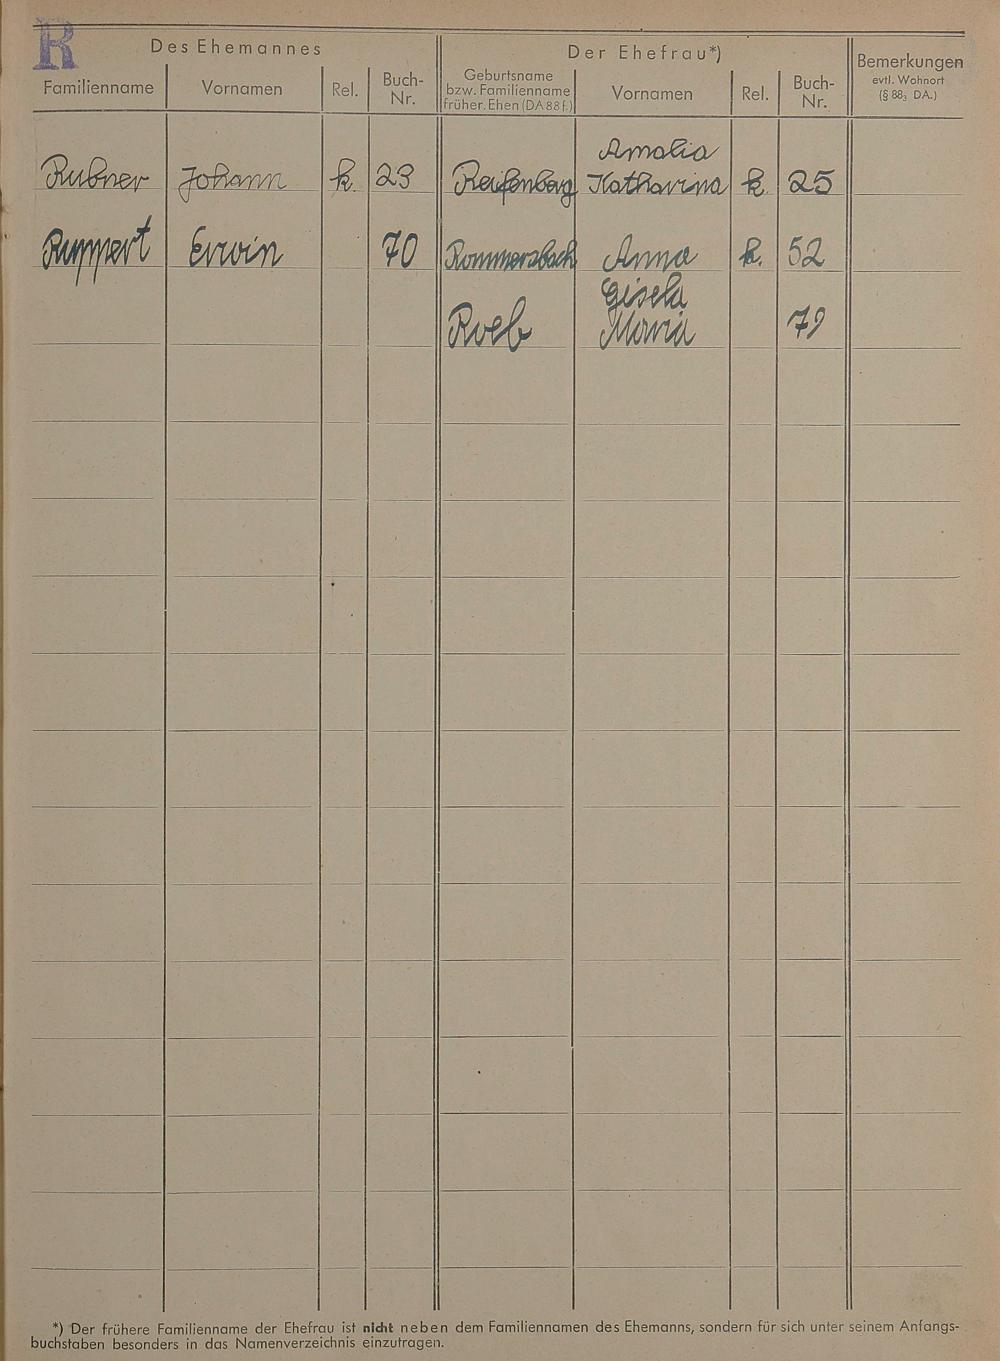 R
Des Ehemannes
Der Ehefrau*)
Bemerkungen
evtl. Wohnort
(§ 88₃ DA.)
Familienname
Vornamen
Rel.
Buch-
Nr.
Geburtsname
bzw. Familienname
früher. Ehen (DA 88 f.)
Vornamen
Rel.
Buch-
Nr.
Amalia
Rubner Johann k. 23 Reifenberg Katharina k 25
Ruppert Erwin 70 Rommersbach Anna k. 52
Gisela
Roeb Maria 79
*) Der frühere Familienname der Ehefrau ist nicht neben dem Familiennamen des Ehemanns, sondern für sich unter seinem Anfangs-
buchstaben besonders in das Namenverzeichnis einzutragen.